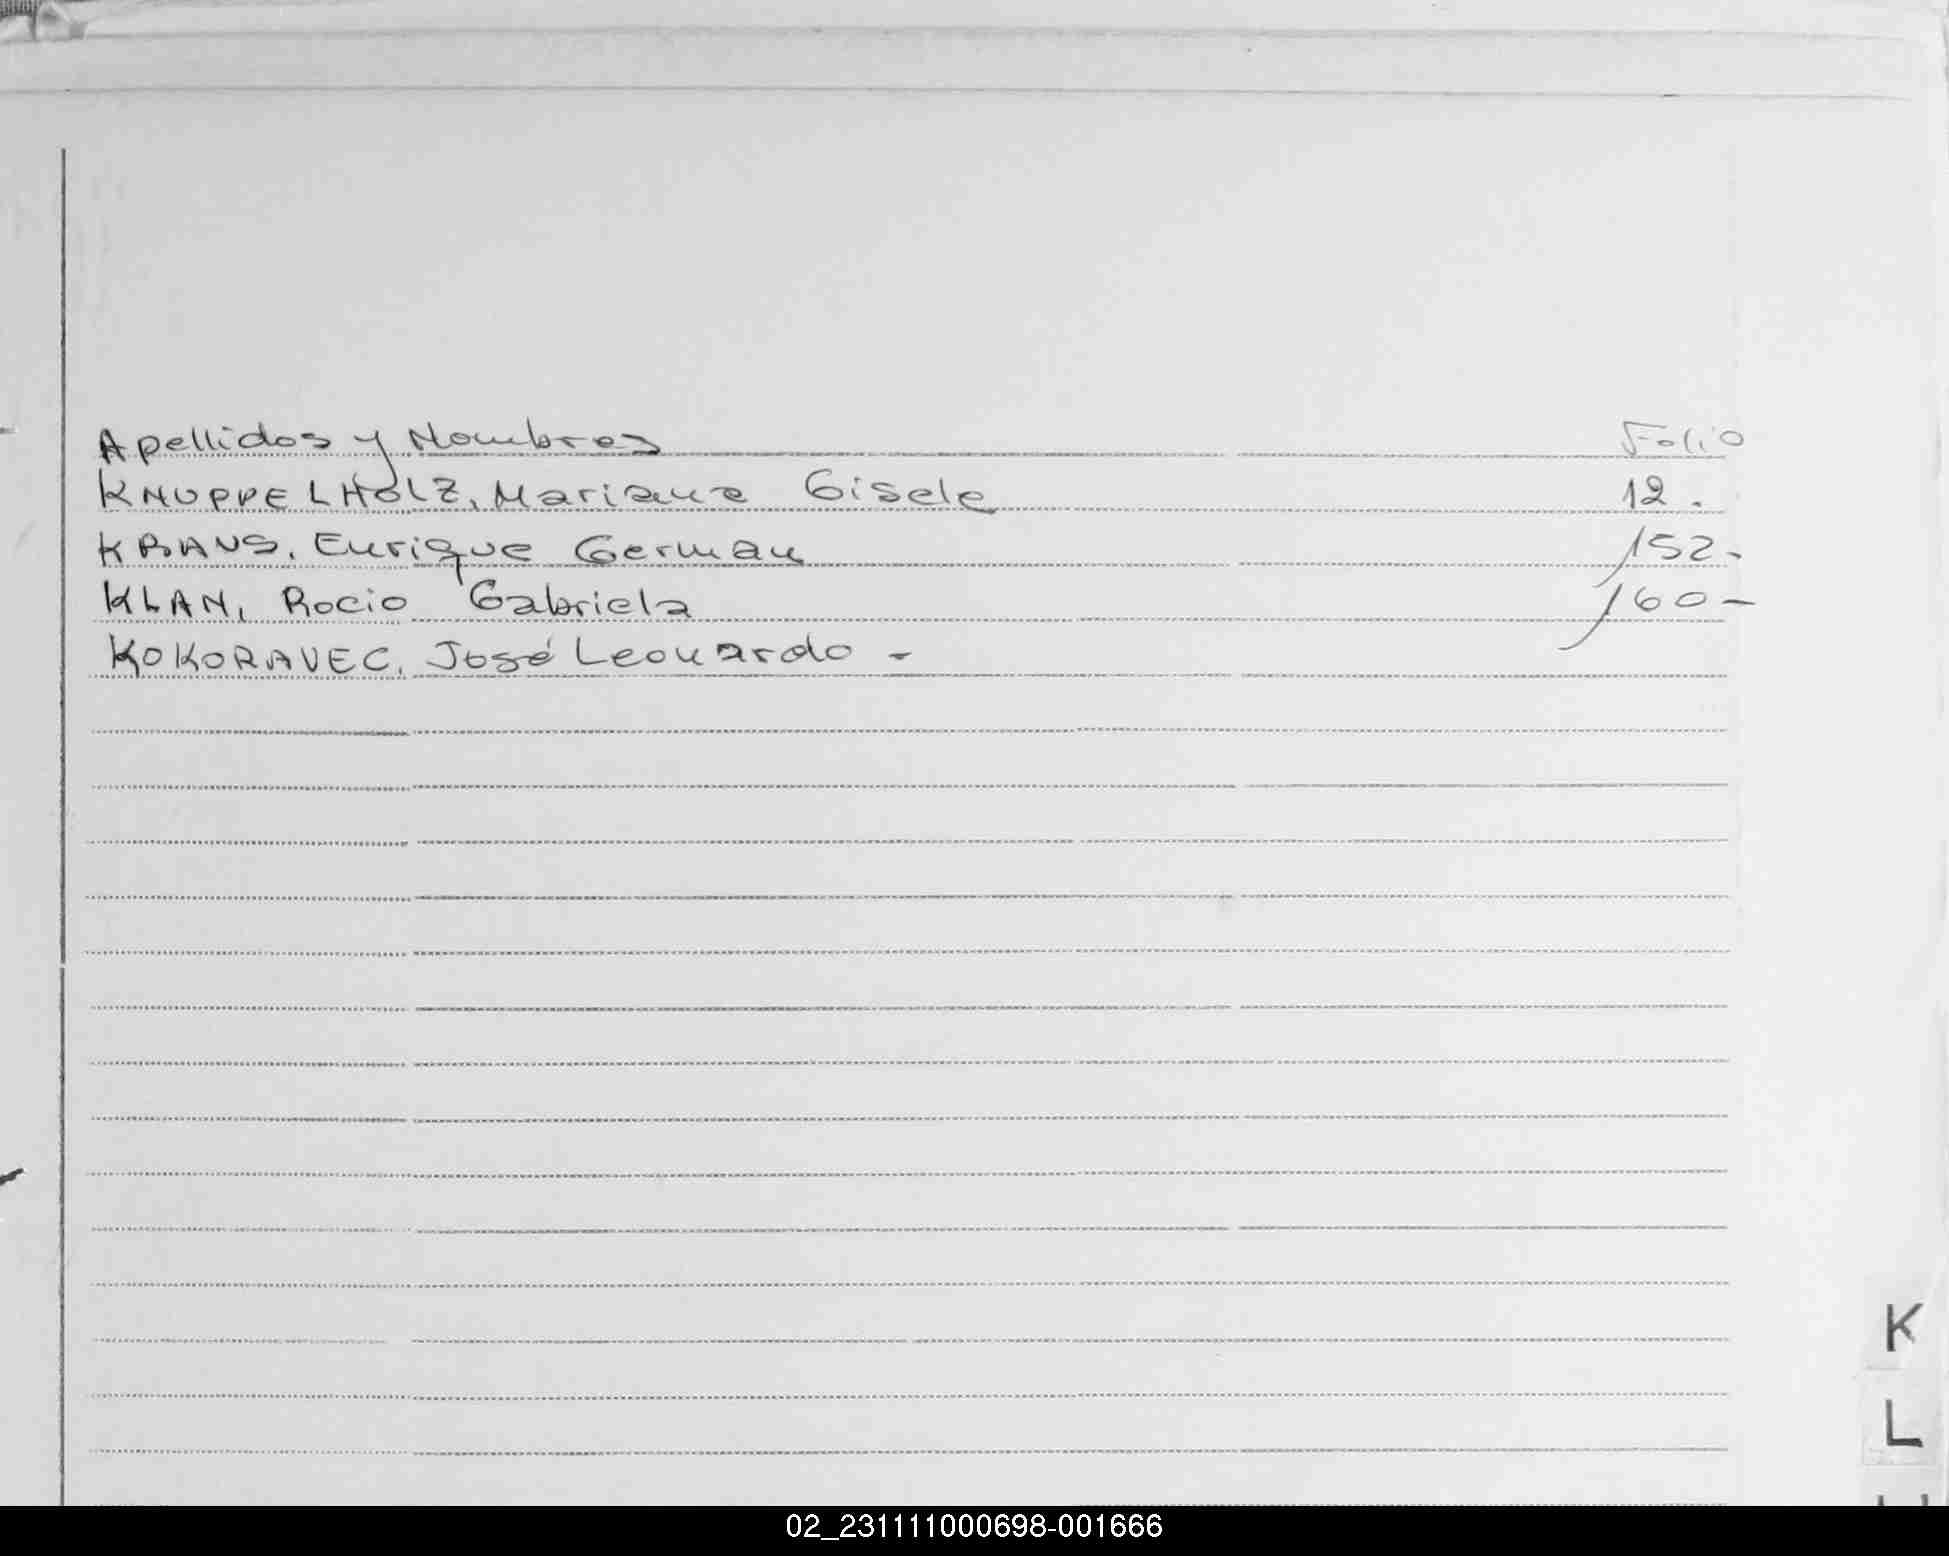 Apellidos y Nombres Folio
KNUPPELHOLZ, Mariana Gisele 12.
KRAUS, Enrique German 152-
KLAN, Rocio Gabriela 160-
KOKORAVEC, José Leonardo -
K
L
02_231111000698-001666